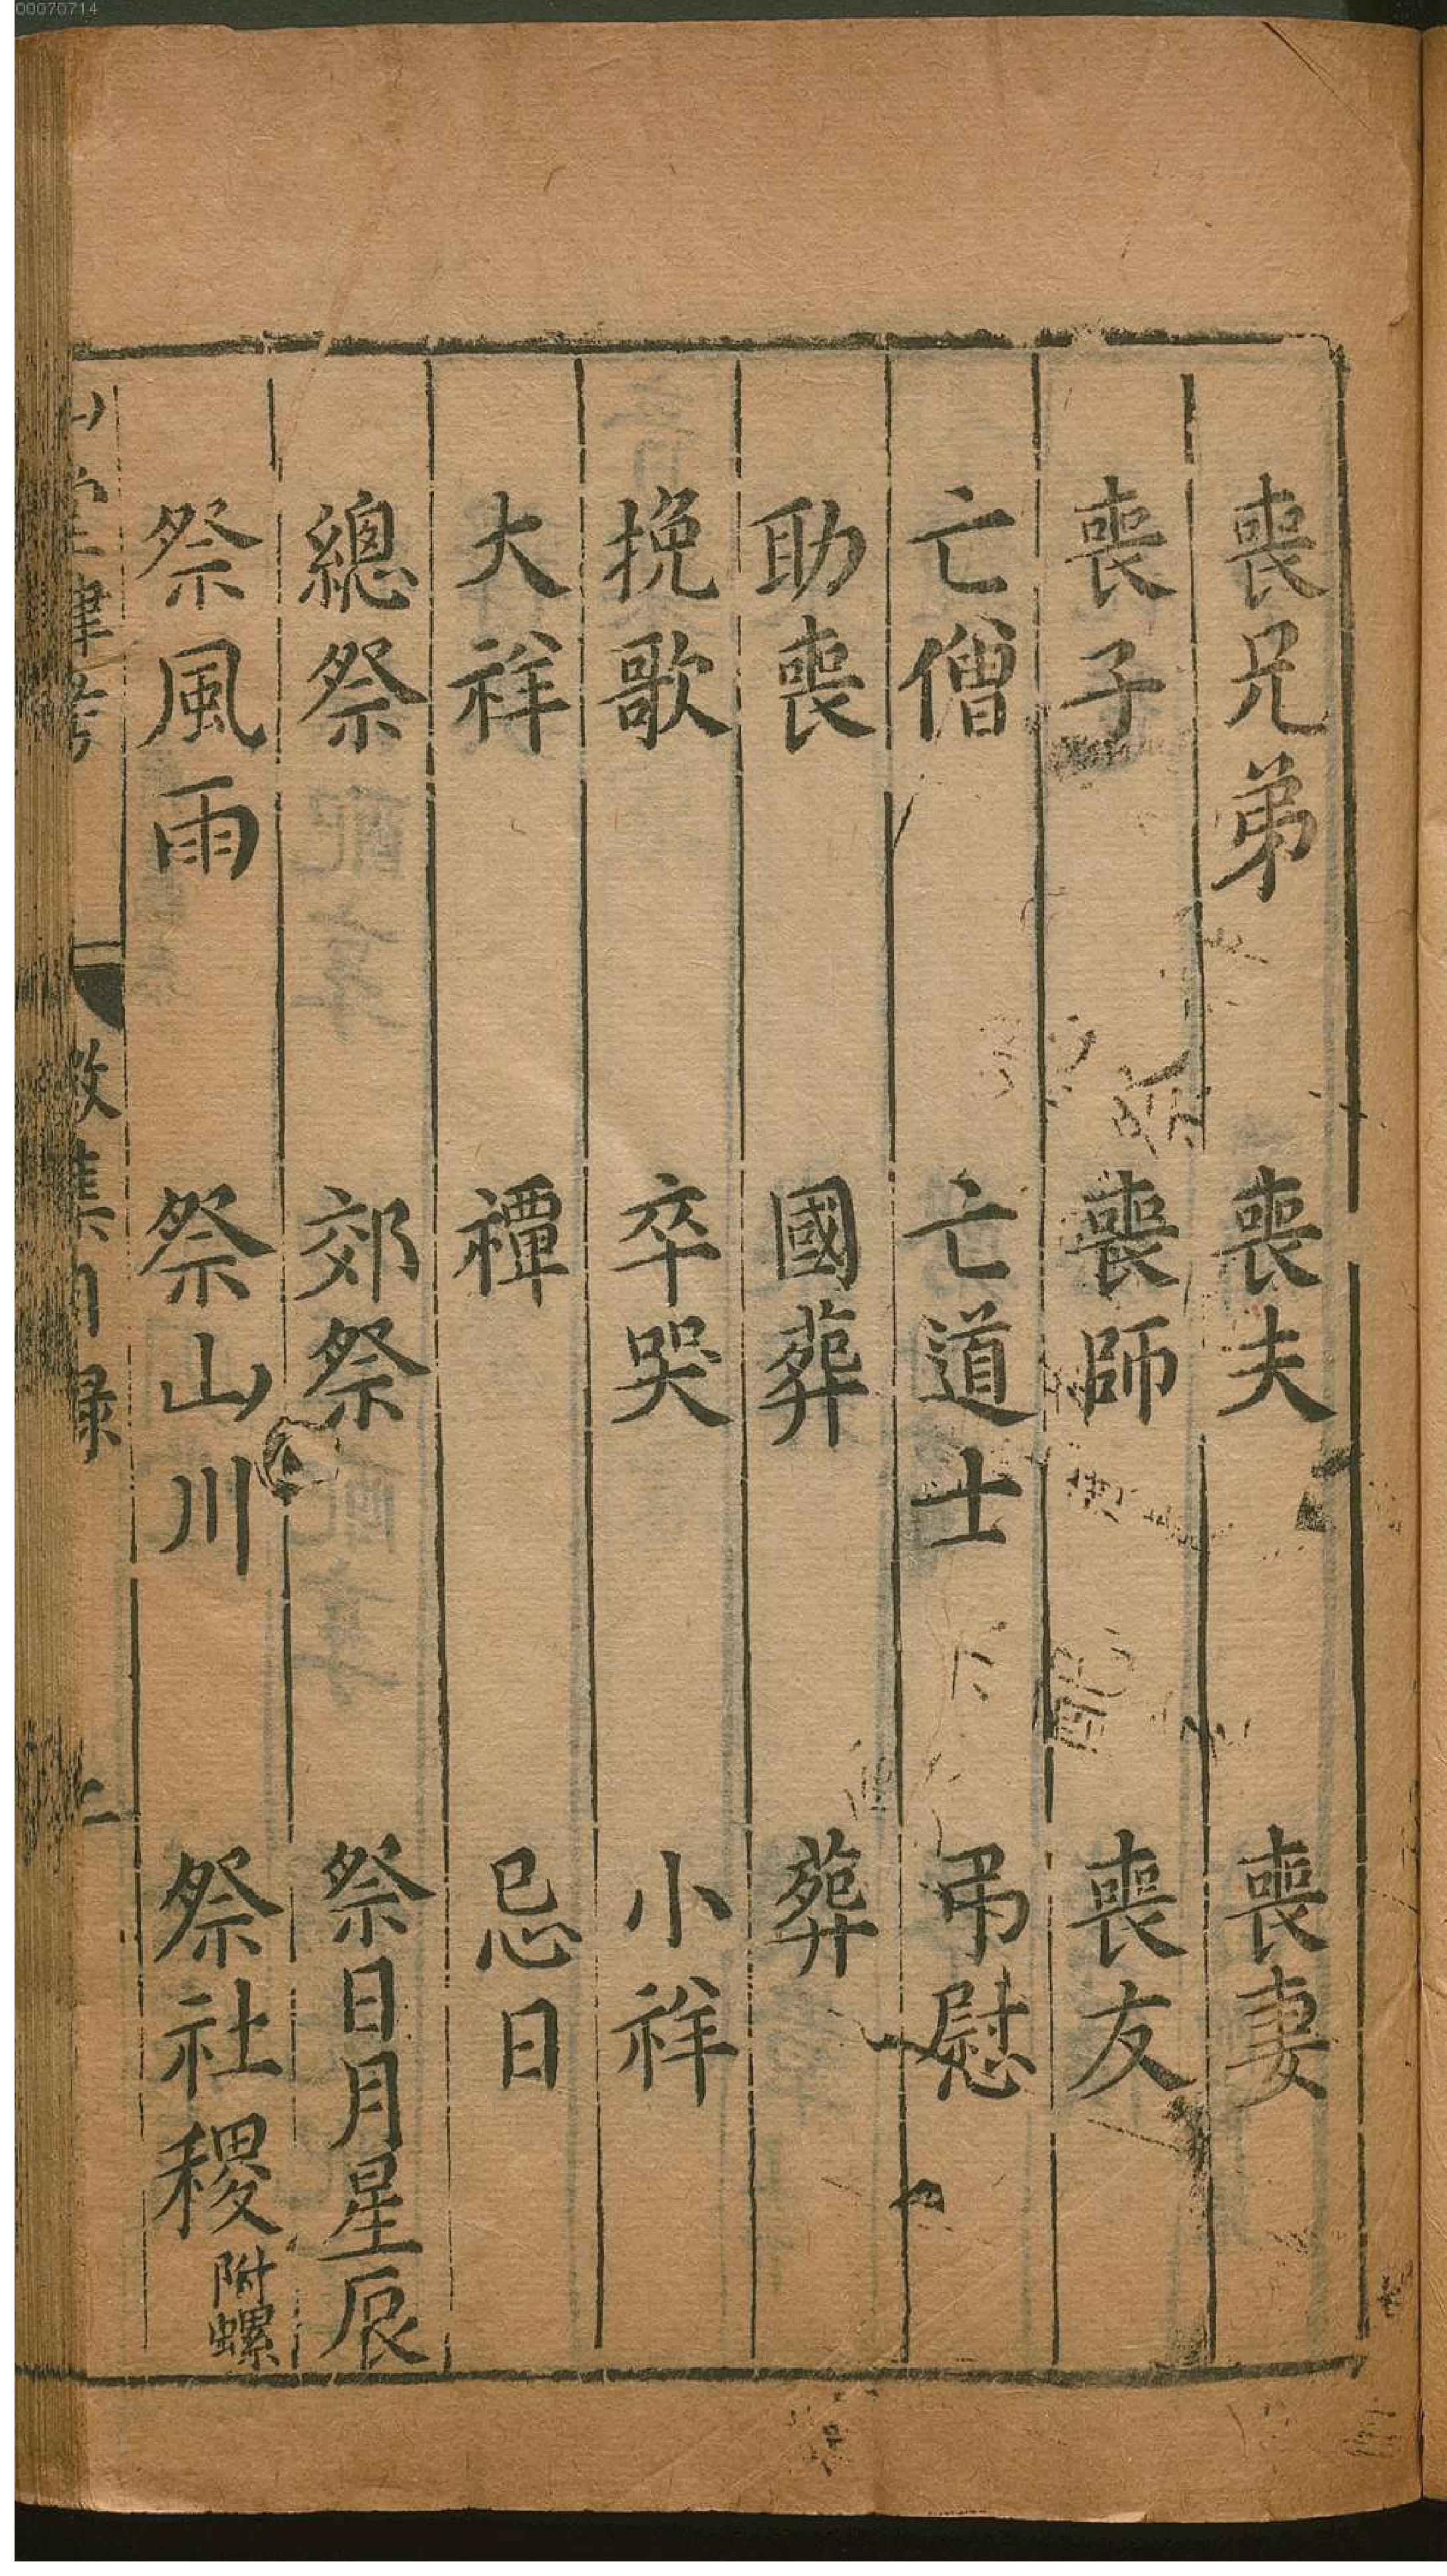 喪兄弟 喪夫 喪妻
喪子 喪師 喪友
亡僧 亡道士 弔慰
助喪 國葬 葬
挽歌 卒哭 小祥
大祥 禫 忌日
總祭 郊祭 祭日月星辰
祭風雨 祭山川 祭社稷附螺
山堂肆考 徵集目録 二
00070714